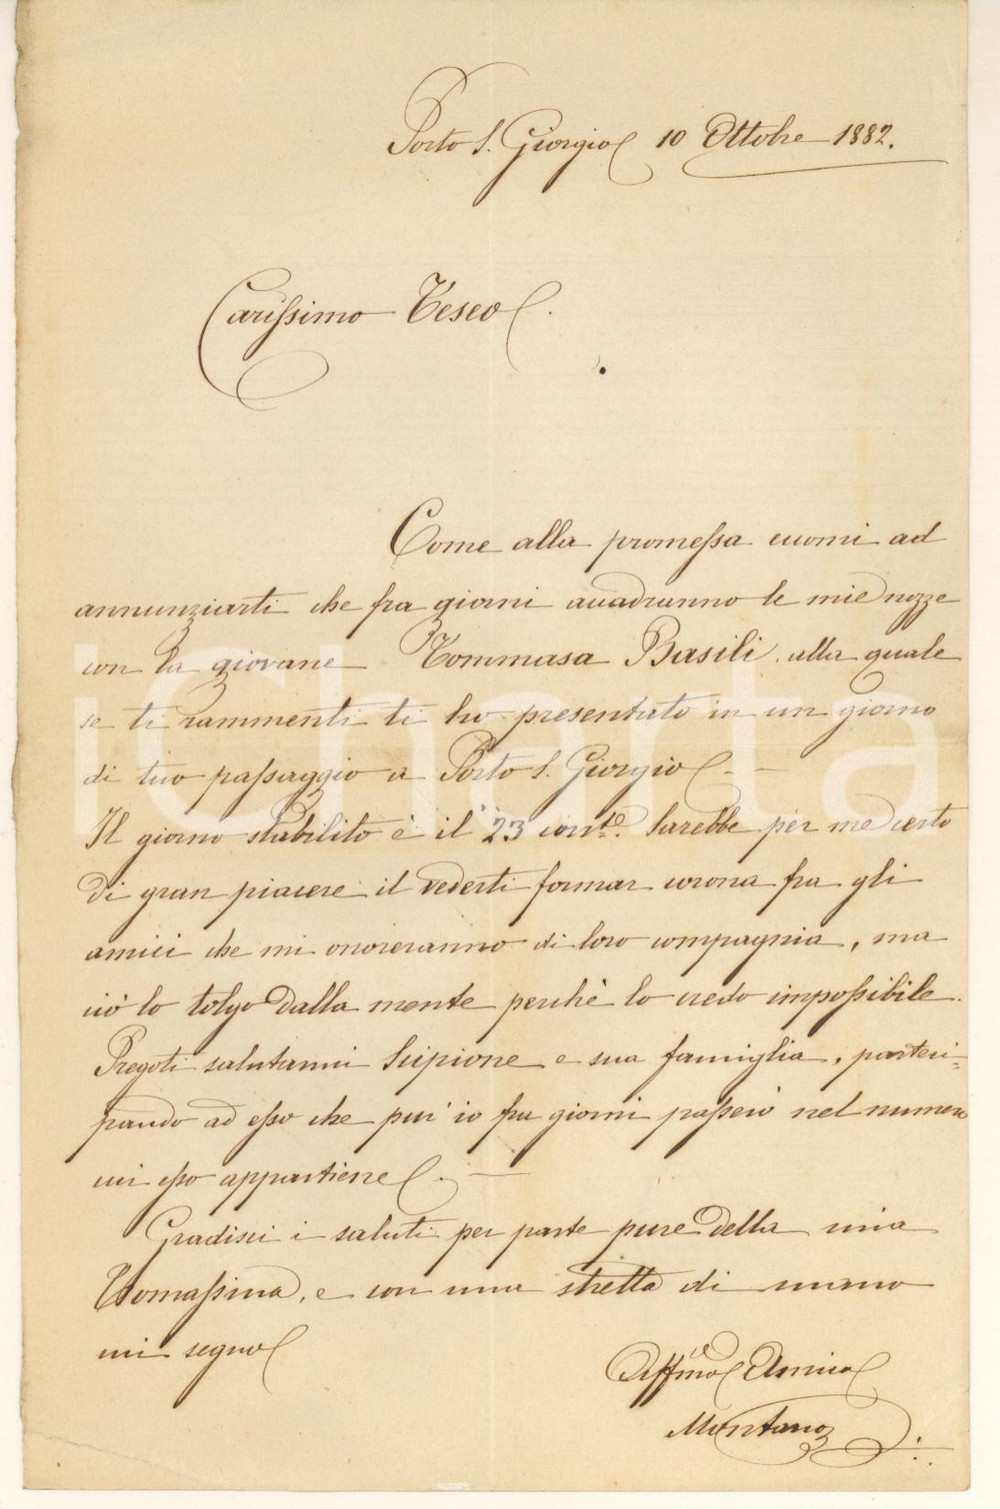 Porto S. Giorgio 10 Ottobre 1882.
Carissimo Teseo.
Come alla promessa eccomi ad
annunziarti che fra giorni accadranno le mie nozze
con la giovane Tommasa Basili alla quale
se ti rammenti ti ho presentato in un giorno
di tuo passaggio a Porto S. Giorgio. —
Il giorno stabilito è il 23 corrte. Sarebbe per me certo
di gran piacere il vederti formar corona fra gli
amici che mi onoreranno di loro compagnia, ma
ciò lo tolgo dalla mente perchè lo credo impossibile.
Pregoti salutarmi Scipione e sua famiglia, parteci=
pando ad esso che pur io fra giorni passerò nel numero
cui esso appartiene. —
Gradisci i saluti per parte pure della mia
Tomassina, e con una stretta di mano
mi segno
Affmo Amico
Montano
iCharta